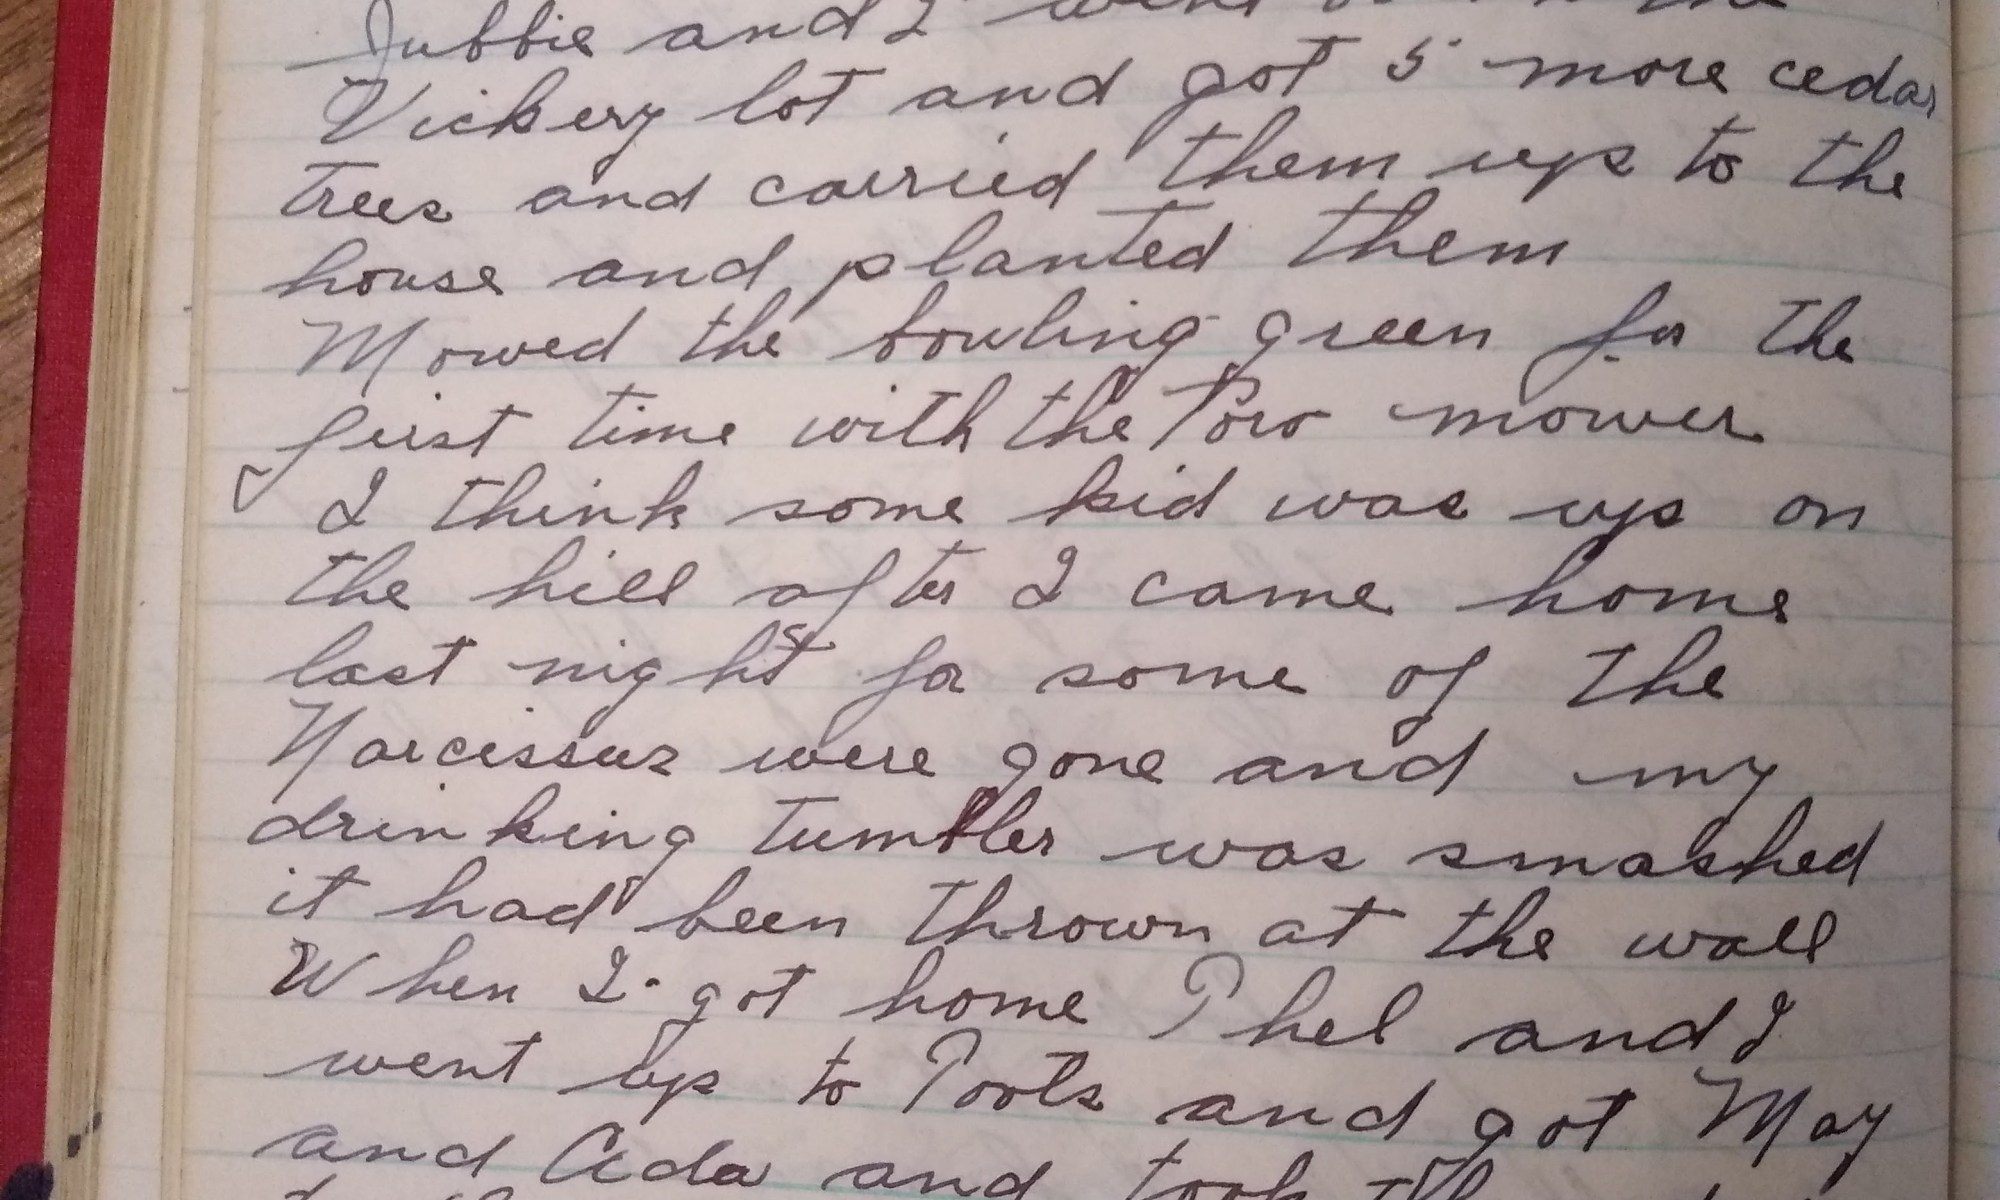 Jubbie and I went
Vickery lot and got 5 more cedar
trees and carried them up to the
house and planted them
Mowed the bowling green for the
first time with the Toro mower
I think some kid was up on
the hill after I came home
last night for some of the
Narcissus were gone and my
drinking tumbler was smashed
it had been thrown at the wall
When I got home Phel and I
went up to Pools and got May
and Ada and took